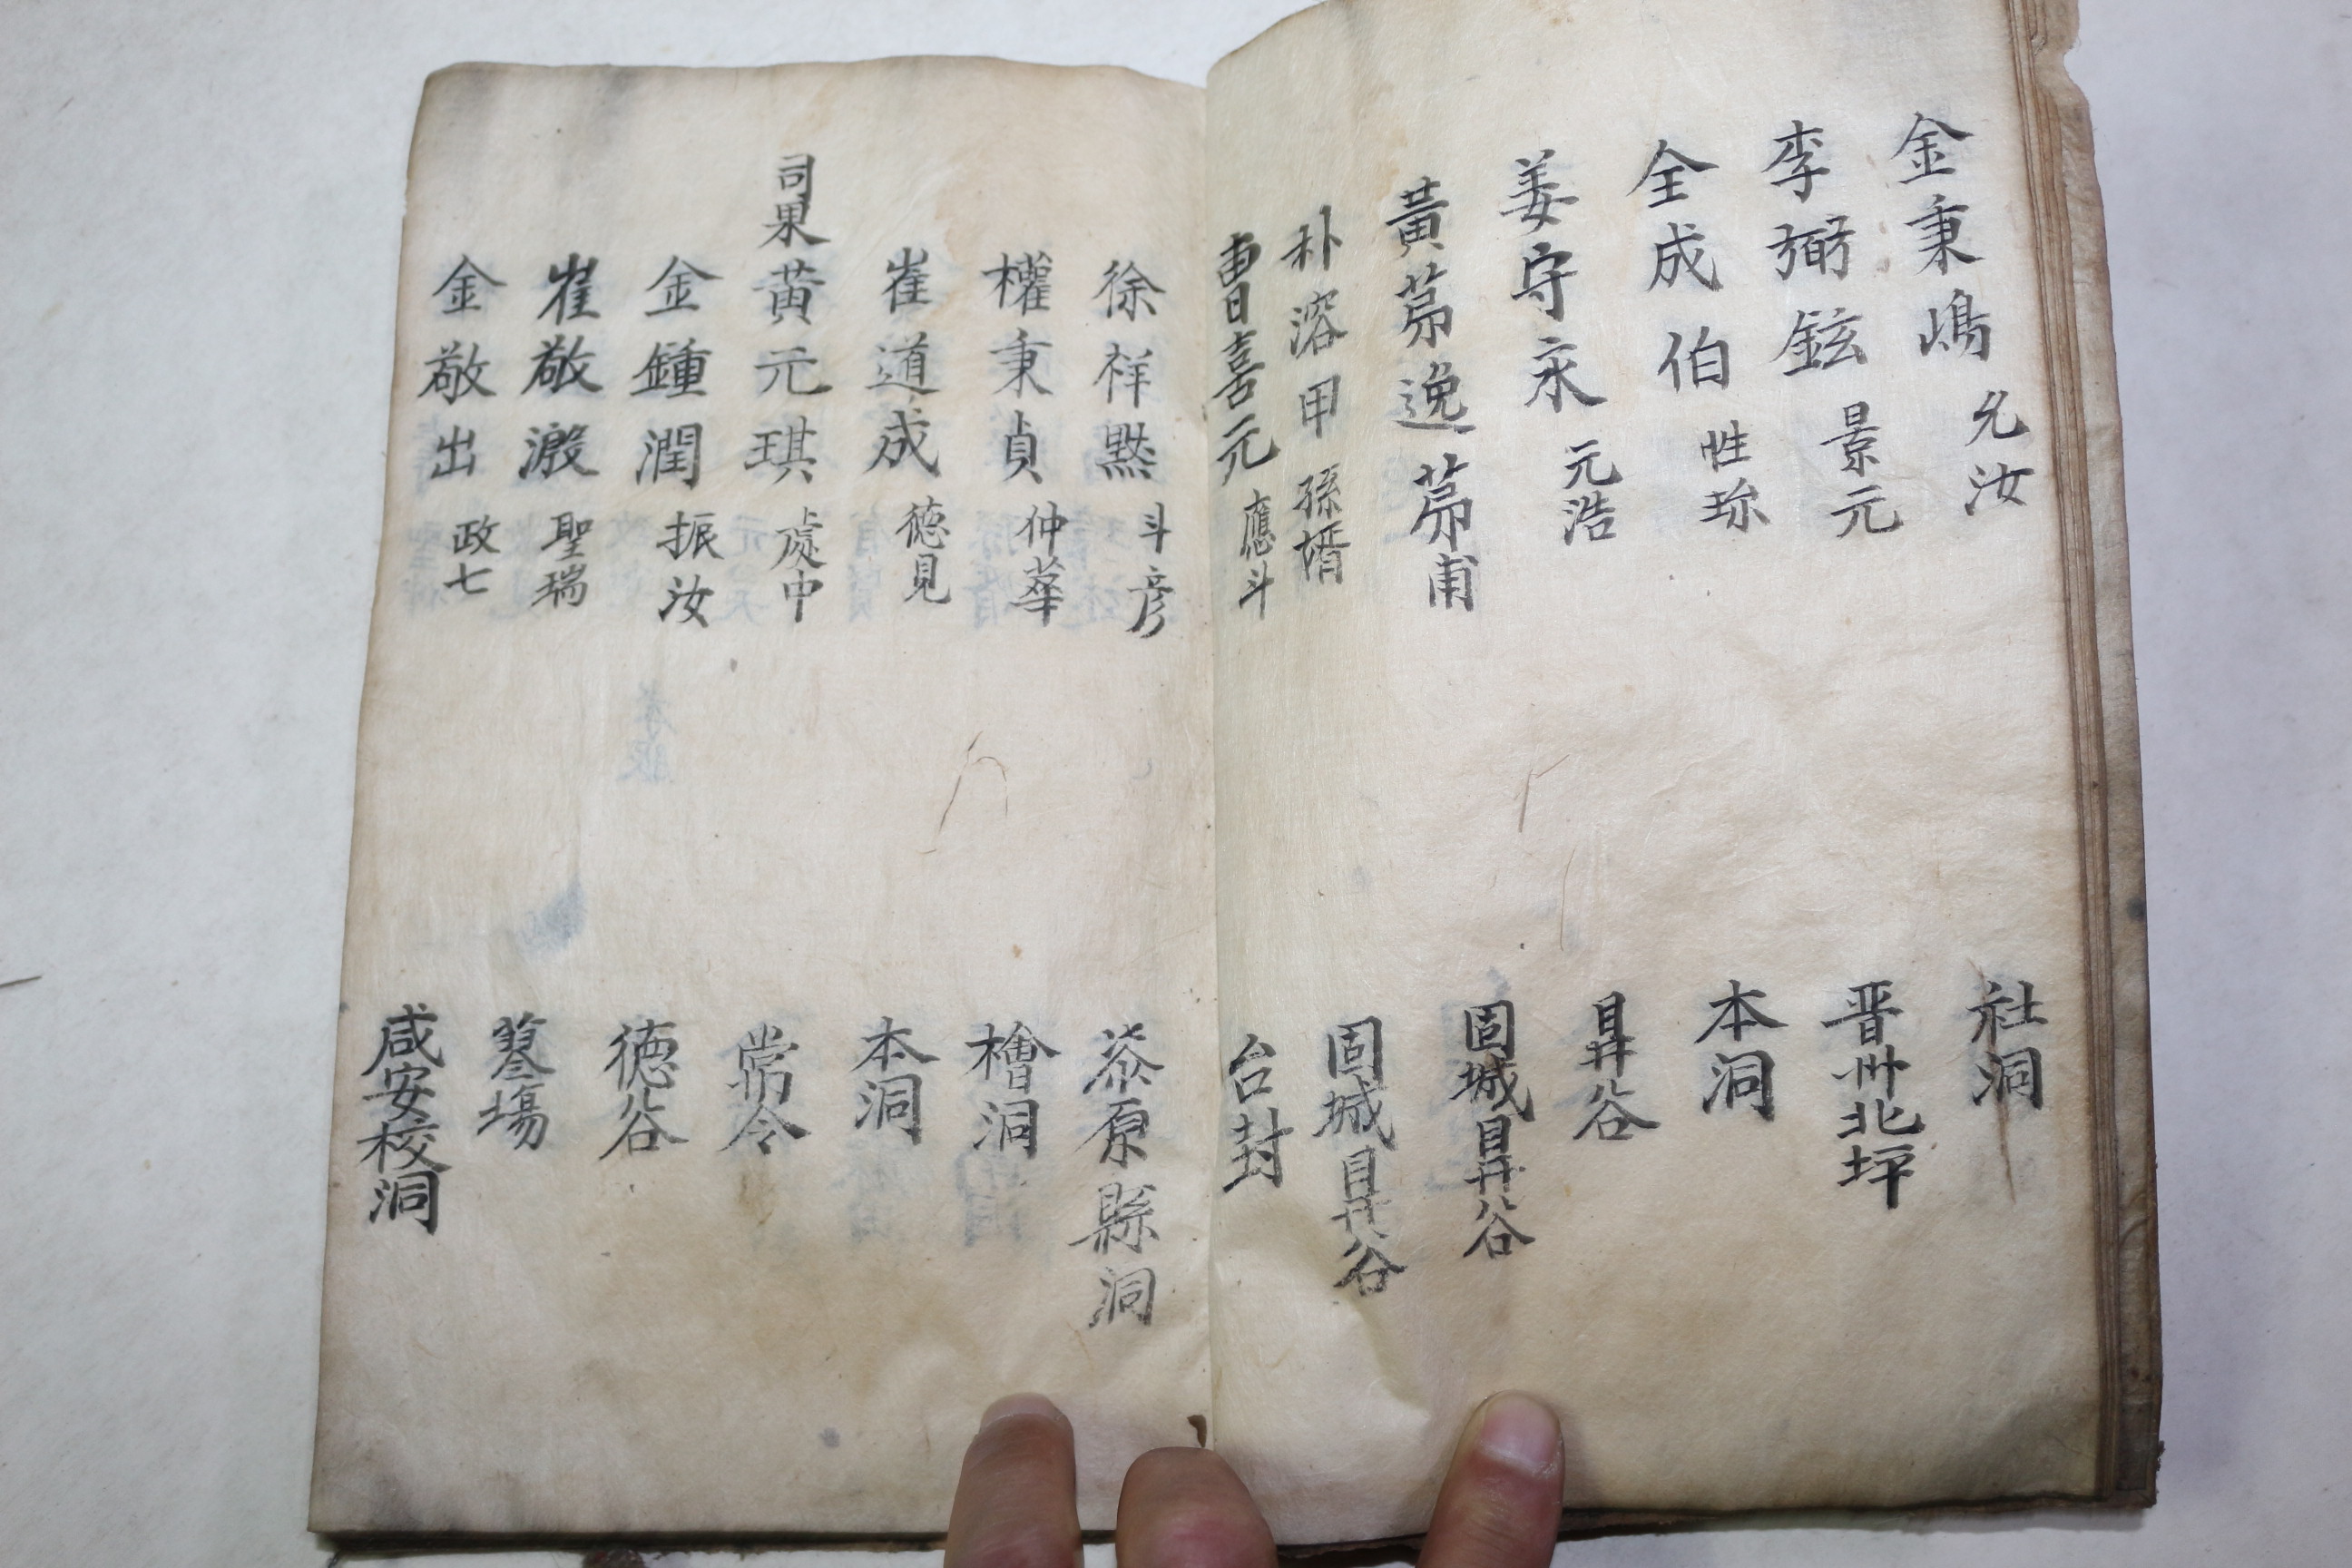 金秉嶋 允汝 社洞
李弼鉉 景元 晋州北坪
全成伯 性珎 本洞
姜守永 元浩 鼻谷
黃茒逸 茒甫 固城鼻谷
朴溶甲 孫壻 固城鼻谷
曺喜元 應斗 台封
徐祥黙 斗彦 茶原縣洞
權秉貞 仲華 檜洞
崔道成 德見 本洞
司果 黃元琪 處中 常令
金鍾潤 振汝 德谷
崔敬激 聖瑞 塲
金敬出 政七 咸安校洞